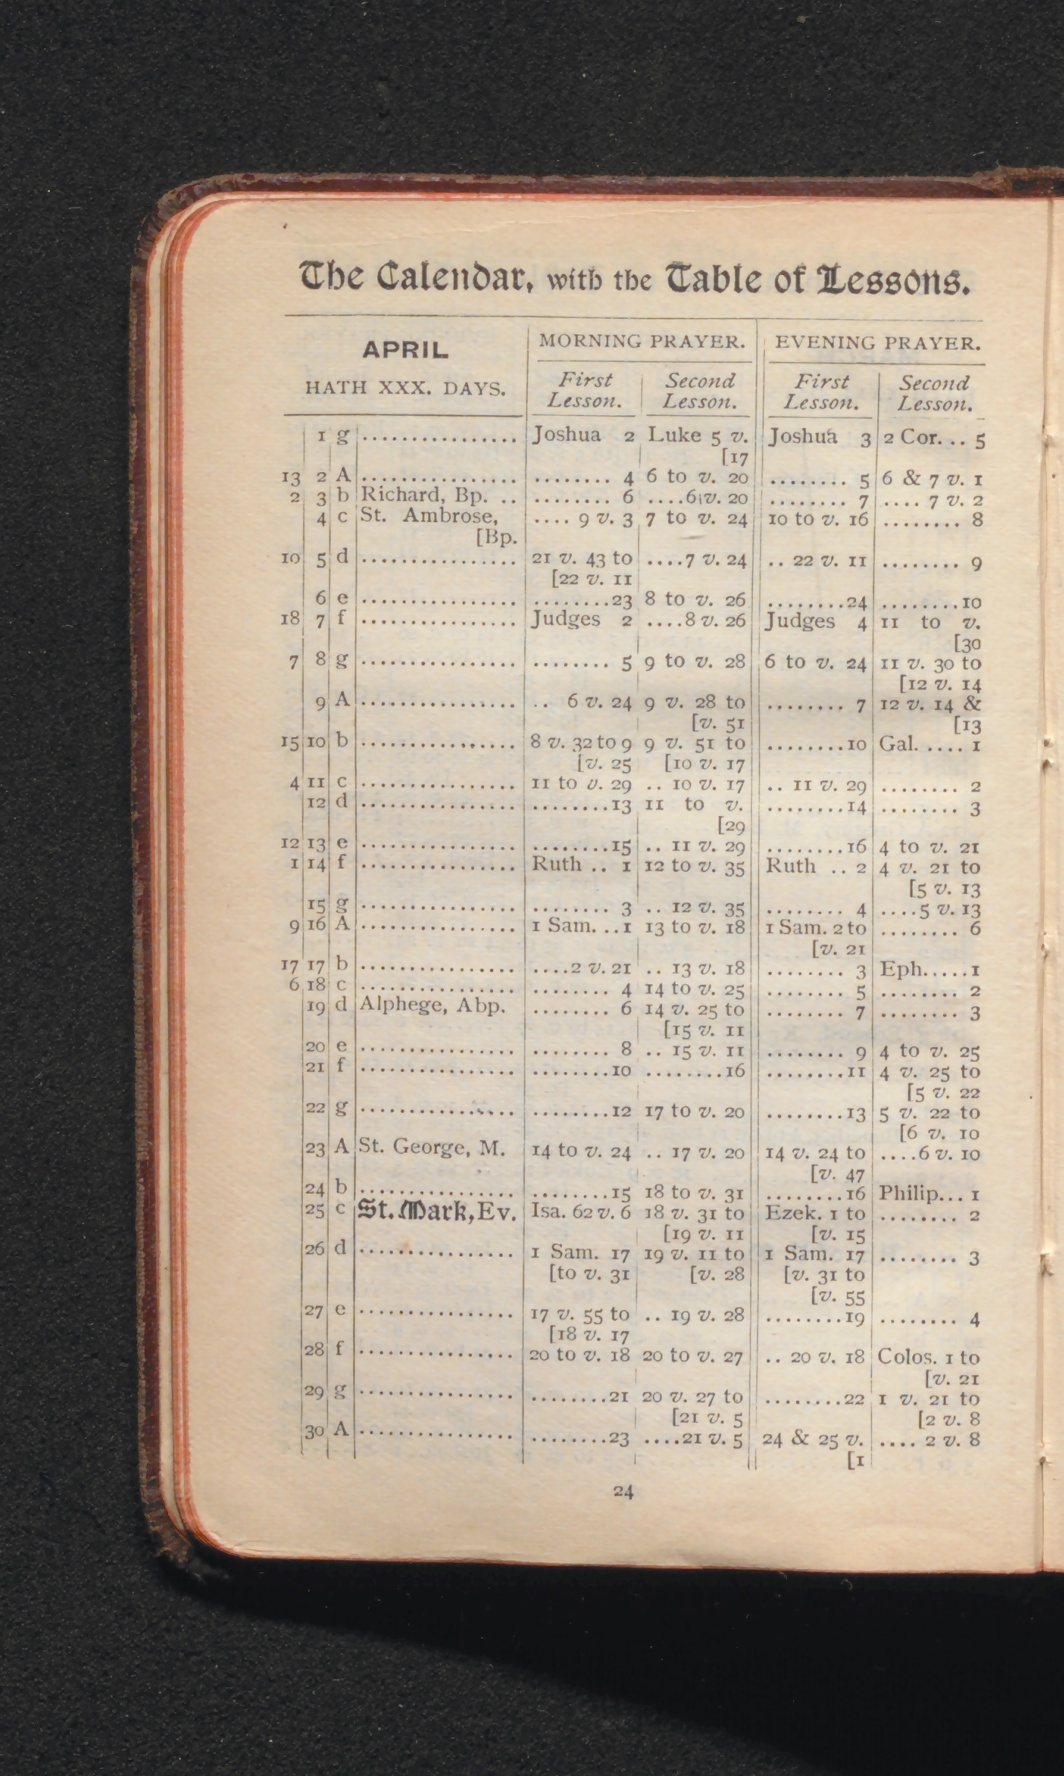 The Calendar, with the Table of Lessons.
APRIL
HATH XXX. DAYS.
MORNING PRAYER.
EVENING PRAYER.
First Lesson. Second Lesson. First Lesson. Second Lesson.
1 g ................ Joshua 2 Luke 5 v. Joshua 3 2 Cor. .. 5
[17
13 2 A ................ ........ 4 6 to v. 20 ........ 5 6 & 7 v. 1
2 3 b Richard, Bp. .. ........ 6 ....6 v. 20 ........ 7 .... 7 v. 2
4 c St. Ambrose, .... 9 v. 3 7 to v. 24 10 to v. 16 ........ 8
[Bp.
10 5 d ................ 21 v. 43 to ....7 v. 24 .. 22 v. 11 ........ 9
[22 v. 11
6 e ................ ........23 8 to v. 26 ........24 ........10
18 7 f ................ Judges 2 ....8 v. 26 Judges 4 11 to v.
[30
7 8 g ................ ........ 5 9 to v. 28 6 to v. 24 11 v. 30 to
[12 v. 14
9 A ................ .. 6 v. 24 9 v. 28 to ........ 7 12 v. 14 &
[v. 51 [13
15 10 b ................ 8 v. 32 to 9 9 v. 51 to ........10 Gal. ..... 1
[v. 25 [10 v. 17
4 11 c ................ 11 to v. 29 .. 10 v. 17 .. 11 v. 29 ........ 2
12 d ................ ........13 11 to v. ........14 ........ 3
[29
12 13 e ................ ........15 .. 11 v. 29 ........16 4 to v. 21
1 14 f ................ Ruth .. 1 12 to v. 35 Ruth .. 2 4 v. 21 to
[5 v. 13
15 g ................ ........ 3 .. 12 v. 35 ........ 4 ....5 v. 13
9 16 A ................ 1 Sam. ..1 13 to v. 18 1 Sam. 2 to ........ 6
[v. 21
17 17 b ................ ....2 v. 21 .. 13 v. 18 ........ 3 Eph.....1
6 18 c ................ ........ 4 14 to v. 25 ........ 5 ........ 2
19 d Alphege, Abp. ........ 6 14 v. 25 to ........ 7 ........ 3
[15 v. 11
20 e ................ ........ 8 .. 15 v. 11 ........ 9 4 to v. 25
21 f ................ ........10 ........16 ........11 4 v. 25 to
[5 v. 22
22 g ................ ........12 17 to v. 20 ........13 5 v. 22 to
[6 v. 10
23 A St. George, M. 14 to v. 24 .. 17 v. 20 14 v. 24 to ....6 v. 10
[v. 47
24 b ................ ........15 18 to v. 31 ........16 Philip... 1
25 c St. Mark, Ev. Isa. 62 v. 6 18 v. 31 to Ezek. 1 to ........ 2
[19 v. 11 [v. 15
26 d ................ 1 Sam. 17 19 v. 11 to 1 Sam. 17 ........ 3
[to v. 31 [v. 28 [v. 31 to
[v. 55
27 e ................ 17 v. 55 to .. 19 v. 28 ........19 ........ 4
[18 v. 17
28 f ................ 20 to v. 18 20 to v. 27 .. 20 v. 18 Colos. 1 to
[v. 21
29 g ................ ........21 20 v. 27 to ........22 1 v. 21 to
[21 v. 5 [2 v. 8
30 A ................ ........23 ....21 v. 5 24 & 25 v. .... 2 v. 8
[1
24